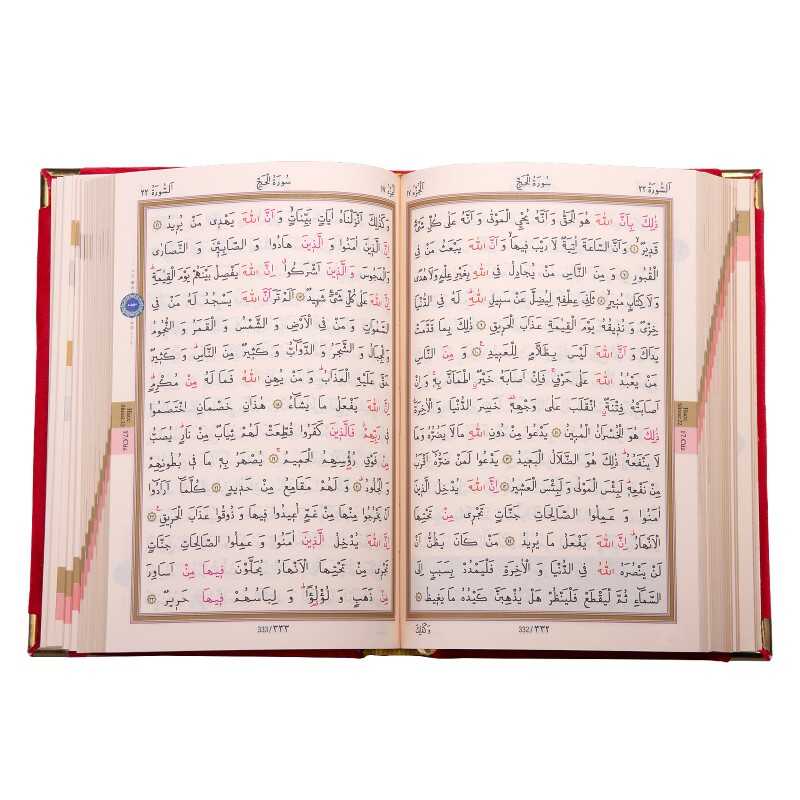 الجزء ١٧
سورة الحج
السورة ٢٢
ذٰلِكَ بِاَنَّ اللّٰهَ هُوَ الْحَقُّ وَ اَنَّهُ يُحْيِي الْمَوْتٰى وَ اَنَّهُ عَلٰى كُلِّ شَيْءٍ
قَدِيرٌ ﴿٦﴾ وَاَنَّ السَّاعَةَ اٰتِيَةٌ لَا رَيْبَ فِيهَا وَ اَنَّ اللّٰهَ يَبْعَثُ مَنْ فِي
الْقُبُورِ ﴿٧﴾ وَ مِنَ النَّاسِ مَنْ يُجَادِلُ فِي اللّٰهِ بِغَيْرِ عِلْمٍ وَلَا هُدًى
وَلَا كِتَابٍ مُنِيرٍ ﴿٨﴾ ثَانِيَ عِطْفِهِ لِيُضِلَّ عَنْ سَبِيلِ اللّٰهِ لَهُ فِي الدُّنْيَا
خِزْيٌ وَ نُذِيقُهُ يَوْمَ الْقِيٰمَةِ عَذَابَ الْحَرِيقِ ﴿٩﴾ ذٰلِكَ بِمَا قَدَّمَتْ
يَدَاكَ وَ اَنَّ اللّٰهَ لَيْسَ بِظَلَّامٍ لِلْعَبِيدِ ﴿١٠﴾ وَ مِنَ النَّاسِ
مَنْ يَعْبُدُ اللّٰهَ عَلٰى حَرْفٍ فَاِنْ اَصَابَهُ خَيْرٌ اطْمَاَنَّ بِهِ وَاِنْ
اَصَابَتْهُ فِتْنَةٌ انْقَلَبَ عَلٰى وَجْهِهِ خَسِرَ الدُّنْيَا وَ الْاٰخِرَةَ
ذٰلِكَ هُوَ الْخُسْرَانُ الْمُبِينُ ﴿١١﴾ يَدْعُوا مِنْ دُونِ اللّٰهِ مَا لَا يَضُرُّهُ وَمَا
لَا يَنْفَعُهُ ذٰلِكَ هُوَ الضَّلَالُ الْبَعِيدُ ﴿١٢﴾ يَدْعُوا لَمَنْ ضَرُّهُ اَقْرَبُ
مِنْ نَفْعِهِ لَبِئْسَ الْمَوْلٰى وَ لَبِئْسَ الْعَشِيرُ ﴿١٣﴾ اِنَّ اللّٰهَ يُدْخِلُ الَّذِينَ
اٰمَنُوا وَ عَمِلُوا الصَّالِحَاتِ جَنَّاتٍ تَجْرِي مِنْ تَحْتِهَا
الْاَنْهَارُ اِنَّ اللّٰهَ يَفْعَلُ مَا يُرِيدُ ﴿١٤﴾ مَنْ كَانَ يَظُنُّ اَنْ
لَنْ يَنْصُرَهُ اللّٰهُ فِي الدُّنْيَا وَ الْاٰخِرَةِ فَلْيَمْدُدْ بِسَبَبٍ اِلَى
السَّمَاءِ ثُمَّ لْيَقْطَعْ فَلْيَنْظُرْ هَلْ يُذْهِبَنَّ كَيْدُهُ مَا يَغِيظُ ﴿١٥﴾
332/٣٣٢
وَكَذٰلِكَ
17.Cüz
سورة الحج
السورة ٢٢
وَكَذٰلِكَ اَنْزَلْنَاهُ اٰيَاتٍ بَيِّنَاتٍ وَ اَنَّ اللّٰهَ يَهْدِي مَنْ يُرِيدُ ﴿١٦﴾
اِنَّ الَّذِينَ اٰمَنُوا وَ الَّذِينَ هَادُوا وَ الصَّابِئِينَ وَ النَّصَارٰى
وَالْمَجُوسَ وَالَّذِينَ اَشْرَكُوا اِنَّ اللّٰهَ يَفْصِلُ بَيْنَهُمْ يَوْمَ الْقِيٰمَةِ
اِنَّ اللّٰهَ عَلٰى كُلِّ شَيْءٍ شَهِيدٌ ﴿١٧﴾ اَلَمْ تَرَ اَنَّ اللّٰهَ يَسْجُدُ لَهُ مَنْ فِي
السَّمٰوَاتِ وَ مَنْ فِي الْاَرْضِ وَ الشَّمْسُ وَ الْقَمَرُ وَ النُّجُومُ
وَالْجِبَالُ وَ الشَّجَرُ وَ الدَّوَابُّ وَ كَثِيرٌ مِنَ النَّاسِ وَ كَثِيرٌ
حَقَّ عَلَيْهِ الْعَذَابُ وَ مَنْ يُهِنِ اللّٰهُ فَمَا لَهُ مِنْ مُكْرِمٍ
اِنَّ اللّٰهَ يَفْعَلُ مَا يَشَاءُ ﴿١٨﴾ هٰذَانِ خَصْمَانِ اخْتَصَمُوا
فِي رَبِّهِمْ فَالَّذِينَ كَفَرُوا قُطِّعَتْ لَهُمْ ثِيَابٌ مِنْ نَارٍ يُصَبُّ
مِنْ فَوْقِ رُؤُسِهِمُ الْحَمِيمُ ﴿١٩﴾ يُصْهَرُ بِهِ مَا فِي بُطُونِهِمْ
وَ الْجُلُودُ ﴿٢٠﴾ وَ لَهُمْ مَقَامِعُ مِنْ حَدِيدٍ ﴿٢١﴾ كُلَّمَا اَرَادُوا
اَنْ يَخْرُجُوا مِنْهَا مِنْ غَمٍّ اُعِيدُوا فِيهَا وَ ذُوقُوا عَذَابَ الْحَرِيقِ ﴿٢٢﴾
اِنَّ اللّٰهَ يُدْخِلُ الَّذِينَ اٰمَنُوا وَ عَمِلُوا الصَّالِحَاتِ جَنَّاتٍ
تَجْرِي مِنْ تَحْتِهَا الْاَنْهَارُ يُحَلَّوْنَ فِيهَا مِنْ اَسَاوِرَ
مِنْ ذَهَبٍ وَ لُؤْلُؤًا وَ لِبَاسُهُمْ فِيهَا حَرِيرٌ ﴿٢٣﴾
333/٣٣٣
17.Cüz